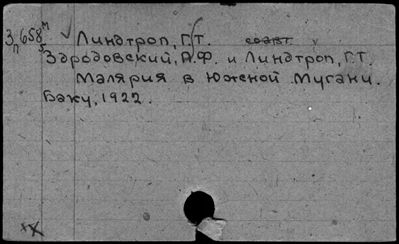 Линдтроп, Г.Т. соавт.
Здродовский, П.Ф. и Линдтроп, Г.Т.
Малярия в Южной Мугани.
Баку, 1922.